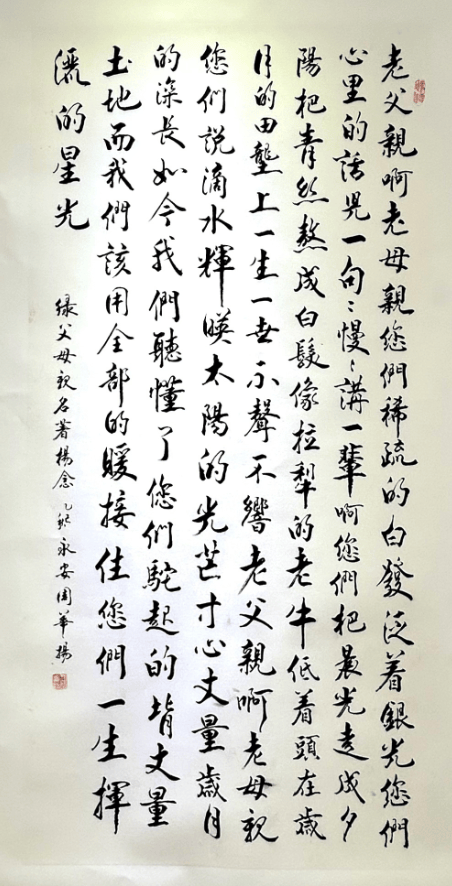 老父親啊老母親您們稀疏的白發泛着銀光您們
心里的話兒一句々慢々講一輩啊您們把晨光走成夕
陽把青絲熬成白髮像拉犁的老牛低着頭在歲
月的田壟上一生一世不聲不響老父親啊老母親
您們說滴水輝暎太陽的光芒寸心丈量歲月
的深長如今我們聽懂了您們駝起的背丈量
土地而我們該用全部的暖接住您們一生揮
灑的星光
緣父母親名著楊念乙 永安周華揚